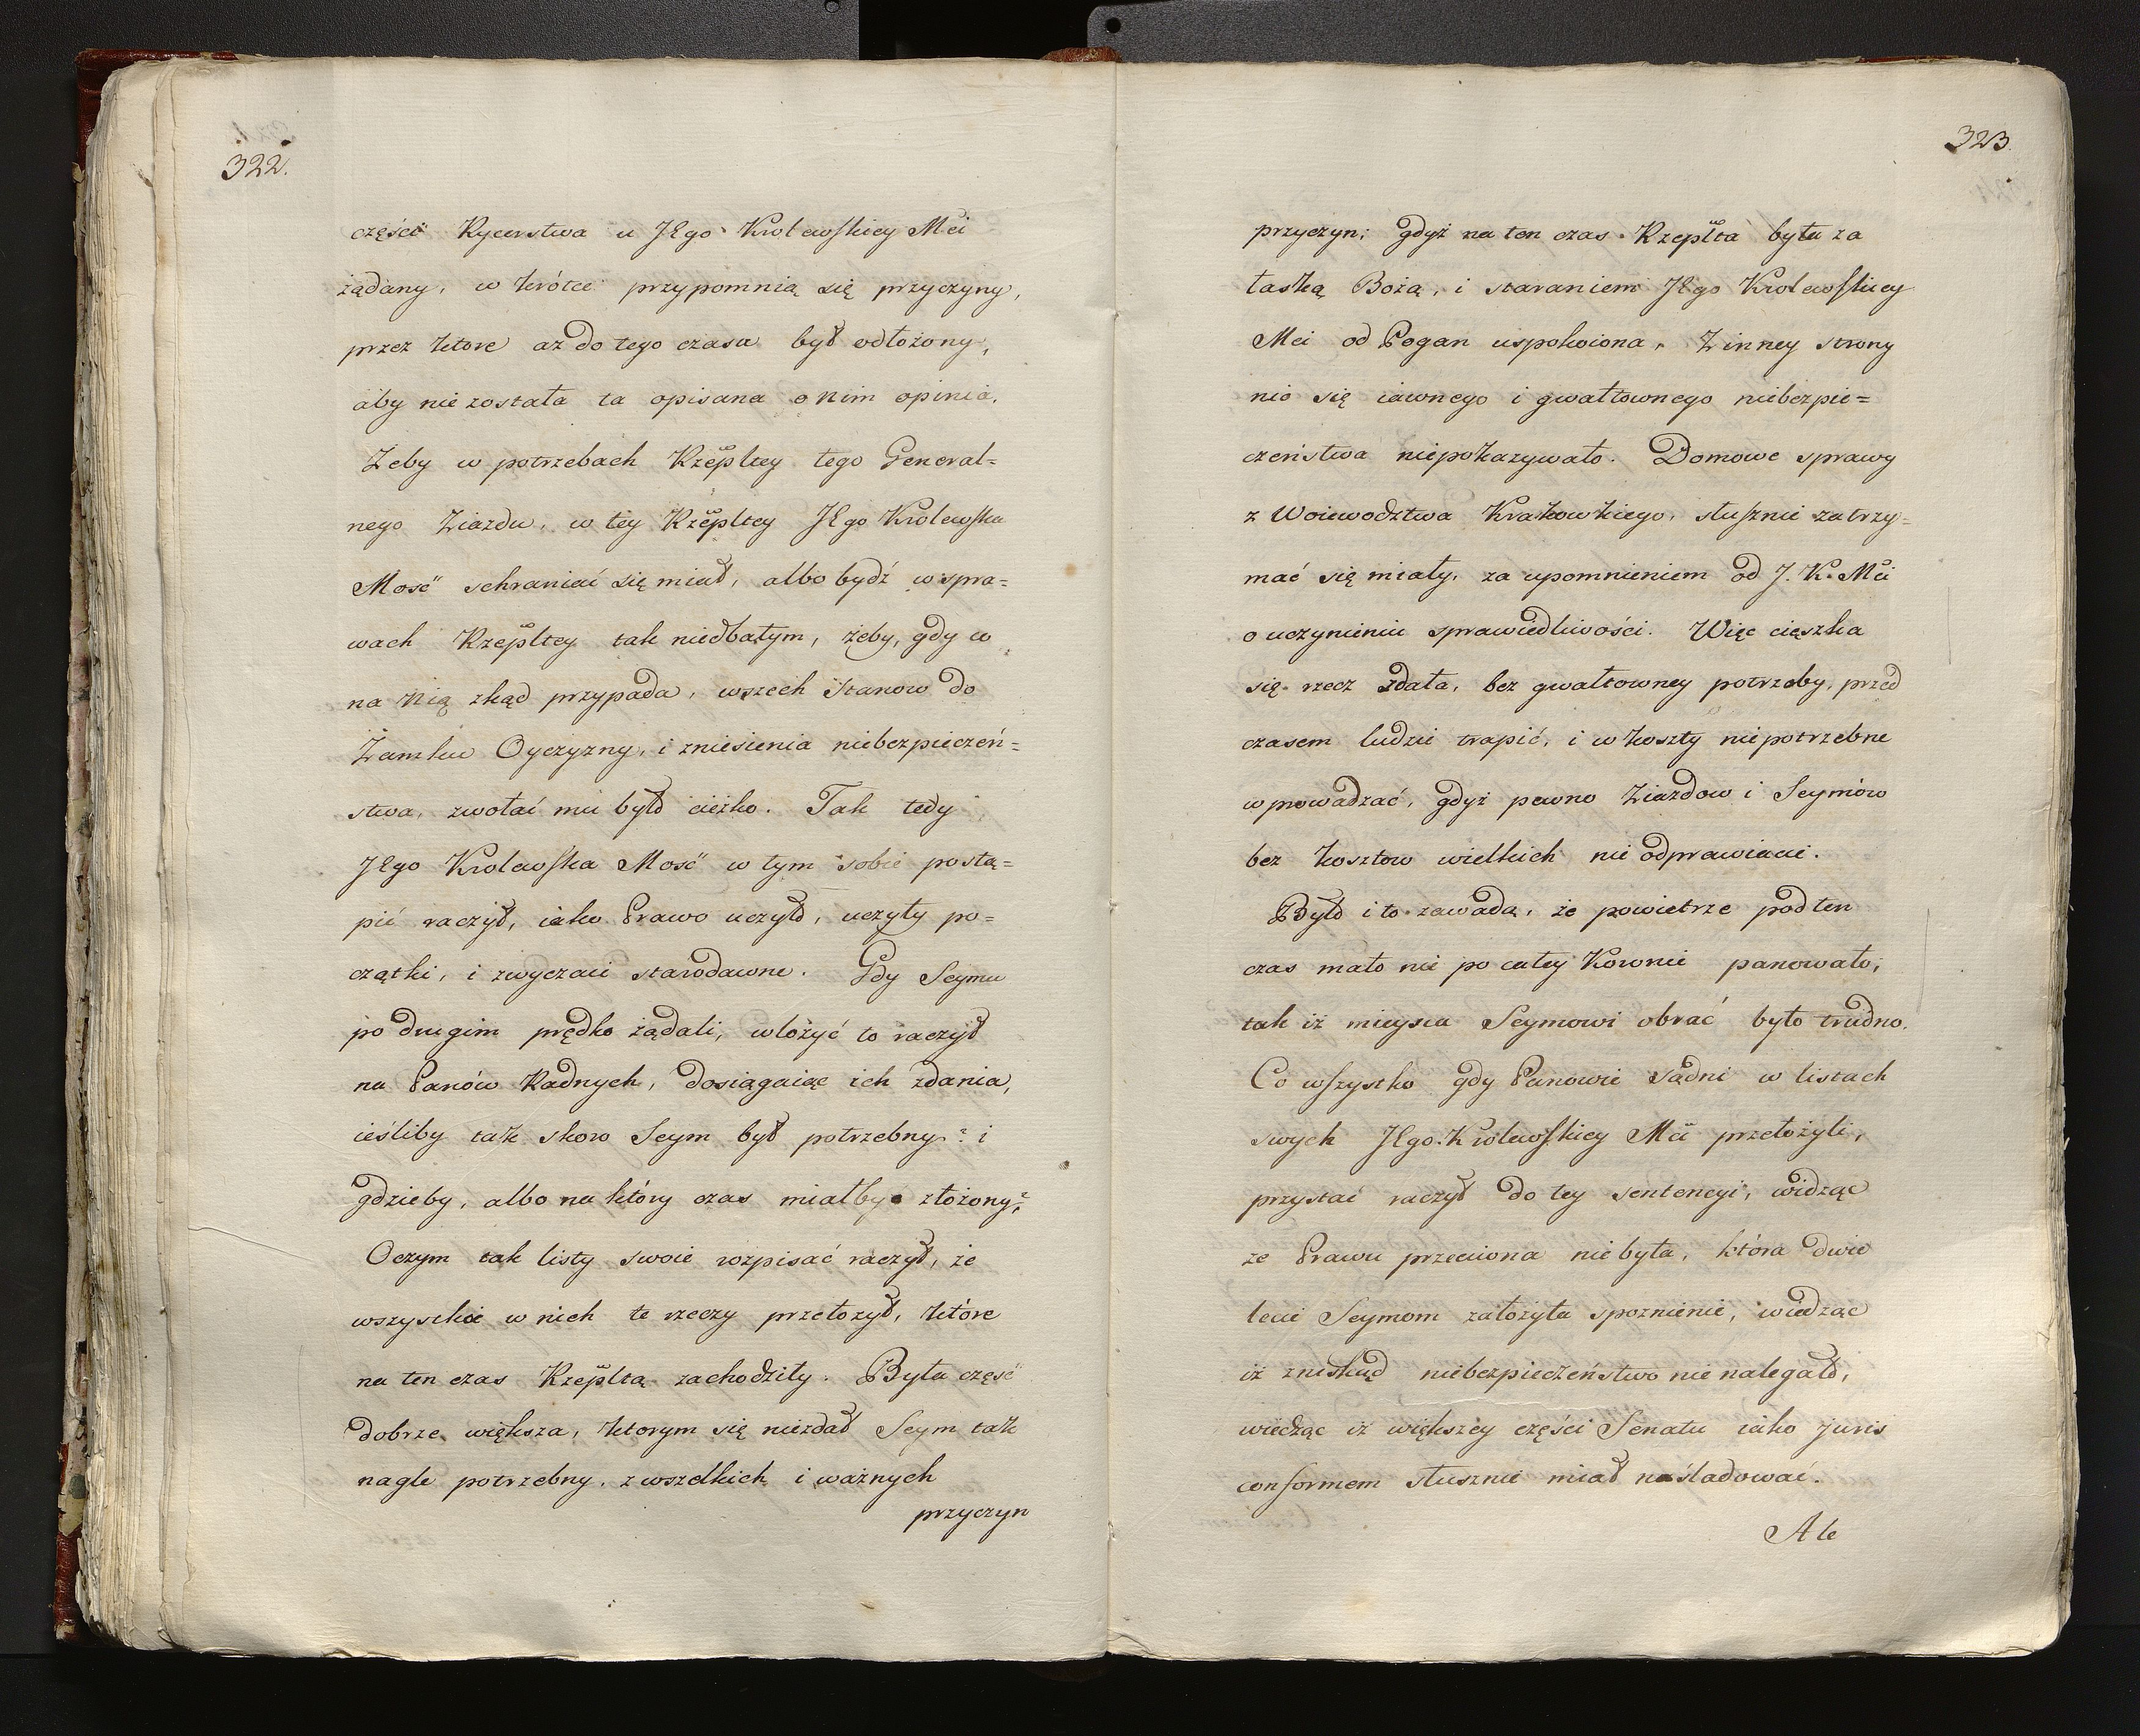 322.
części Rycerstwa u JEgo Krolewskiey Mci
żądany, w krótce przypomnią się przyczyny,
przez ktore az do tego czasu był odłożony,
aby nie została ta opisana o nim opinia,
Zeby w potrzebach Rzepltey tego General=
nego Ziazdu, w tey Rzepltey JEgo Krolewska
Mość schraniać się miał, albo bydź w spra=
wach Rzepltey tak niedbałym, żeby, gdy co
na nią zkąd przypada, wszech Stanow do
Zamku Oyczyzny, i zniesienia niebezpieczeń=
stwa, zwołać mu było cieżko. Tak tedy
JEgo Krolewska Mość w tym sobie postą=
pić raczył, iako Prawo uczyło, uczyły po=
czątki, i zwyczaie starodawne. Gdy Seymu
po drugim prędko żądali, włożyć to raczył
na Panów Radnych, dosiągaiąc ich zdania,
ieśliby tak skoro Seym był potrzebny? i
gdzieby, albo na który czas miałby złożony?
Oczym tak listy swoie rozpisać raczył, że
wszystkie w nich te rzeczy przełozył, które
na ten czas Rzepltą zachodziły. Była część
dobrze większa, ktorym się niezdał Seym tak
nagle potrzebny, z wszelkich i ważnych
przyczyn
323
przyczyn; gdyż na ten czas Rzeplta była za
łaską Bożą, i staraniem JEgo Krolewskiey
Mci od Pogan uspokoiona, Z inney strony
nic się iawnego i gwałtownego niebezpie=
czeństwa niepokazywało. Domowe sprawy
z Woiewodztwa Krakowkiego, słusznie zatrzy=
mać się miały, za upomnieniem od J. K. Mci
o uczynieniu sprawiedliwości. Więc cięszka
się rzecz zdała, bez gwałtowney potrzeby, przed
czasem ludzie trapić, i w koszty niepotrzebne
wprowadzać, gdyż pewno Ziazdow i Seymów
bez kosztow wielkich nie odprawiacie.
Było i to zawadą, że powietrze pod ten
czas mało nie po całey Koronie panowało,
tak iż mieysca Seymowi obrać było trudno.
Co wszystko gdy Panowie Radni w listach
swych JEgo Krolewskiey Mci przełożyli,
przystać raczył do tey sentencyi, widząc
ze Prawu przeciwna niebyła, która dwie
lecie Seymom założyła spoznienie, wiedząc
iż zniskąd niebezpieczeństwo nie nalegało,
wiedząc iż większey części Senatu iako juris
conformem słusznie miał naśladować.
Ale